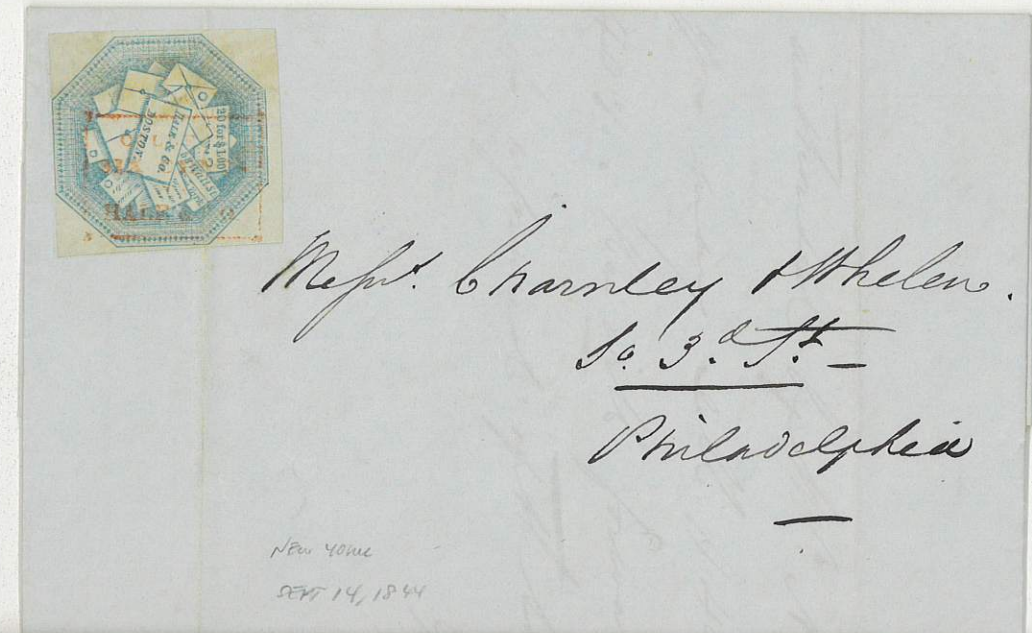 20 for $1.00
HALE & Co.
BOSTON.
HALE &
Messrs. Charnley & Whelen.
So. 3.d St.
Philadelphia
New York
SEPT 14, 1844